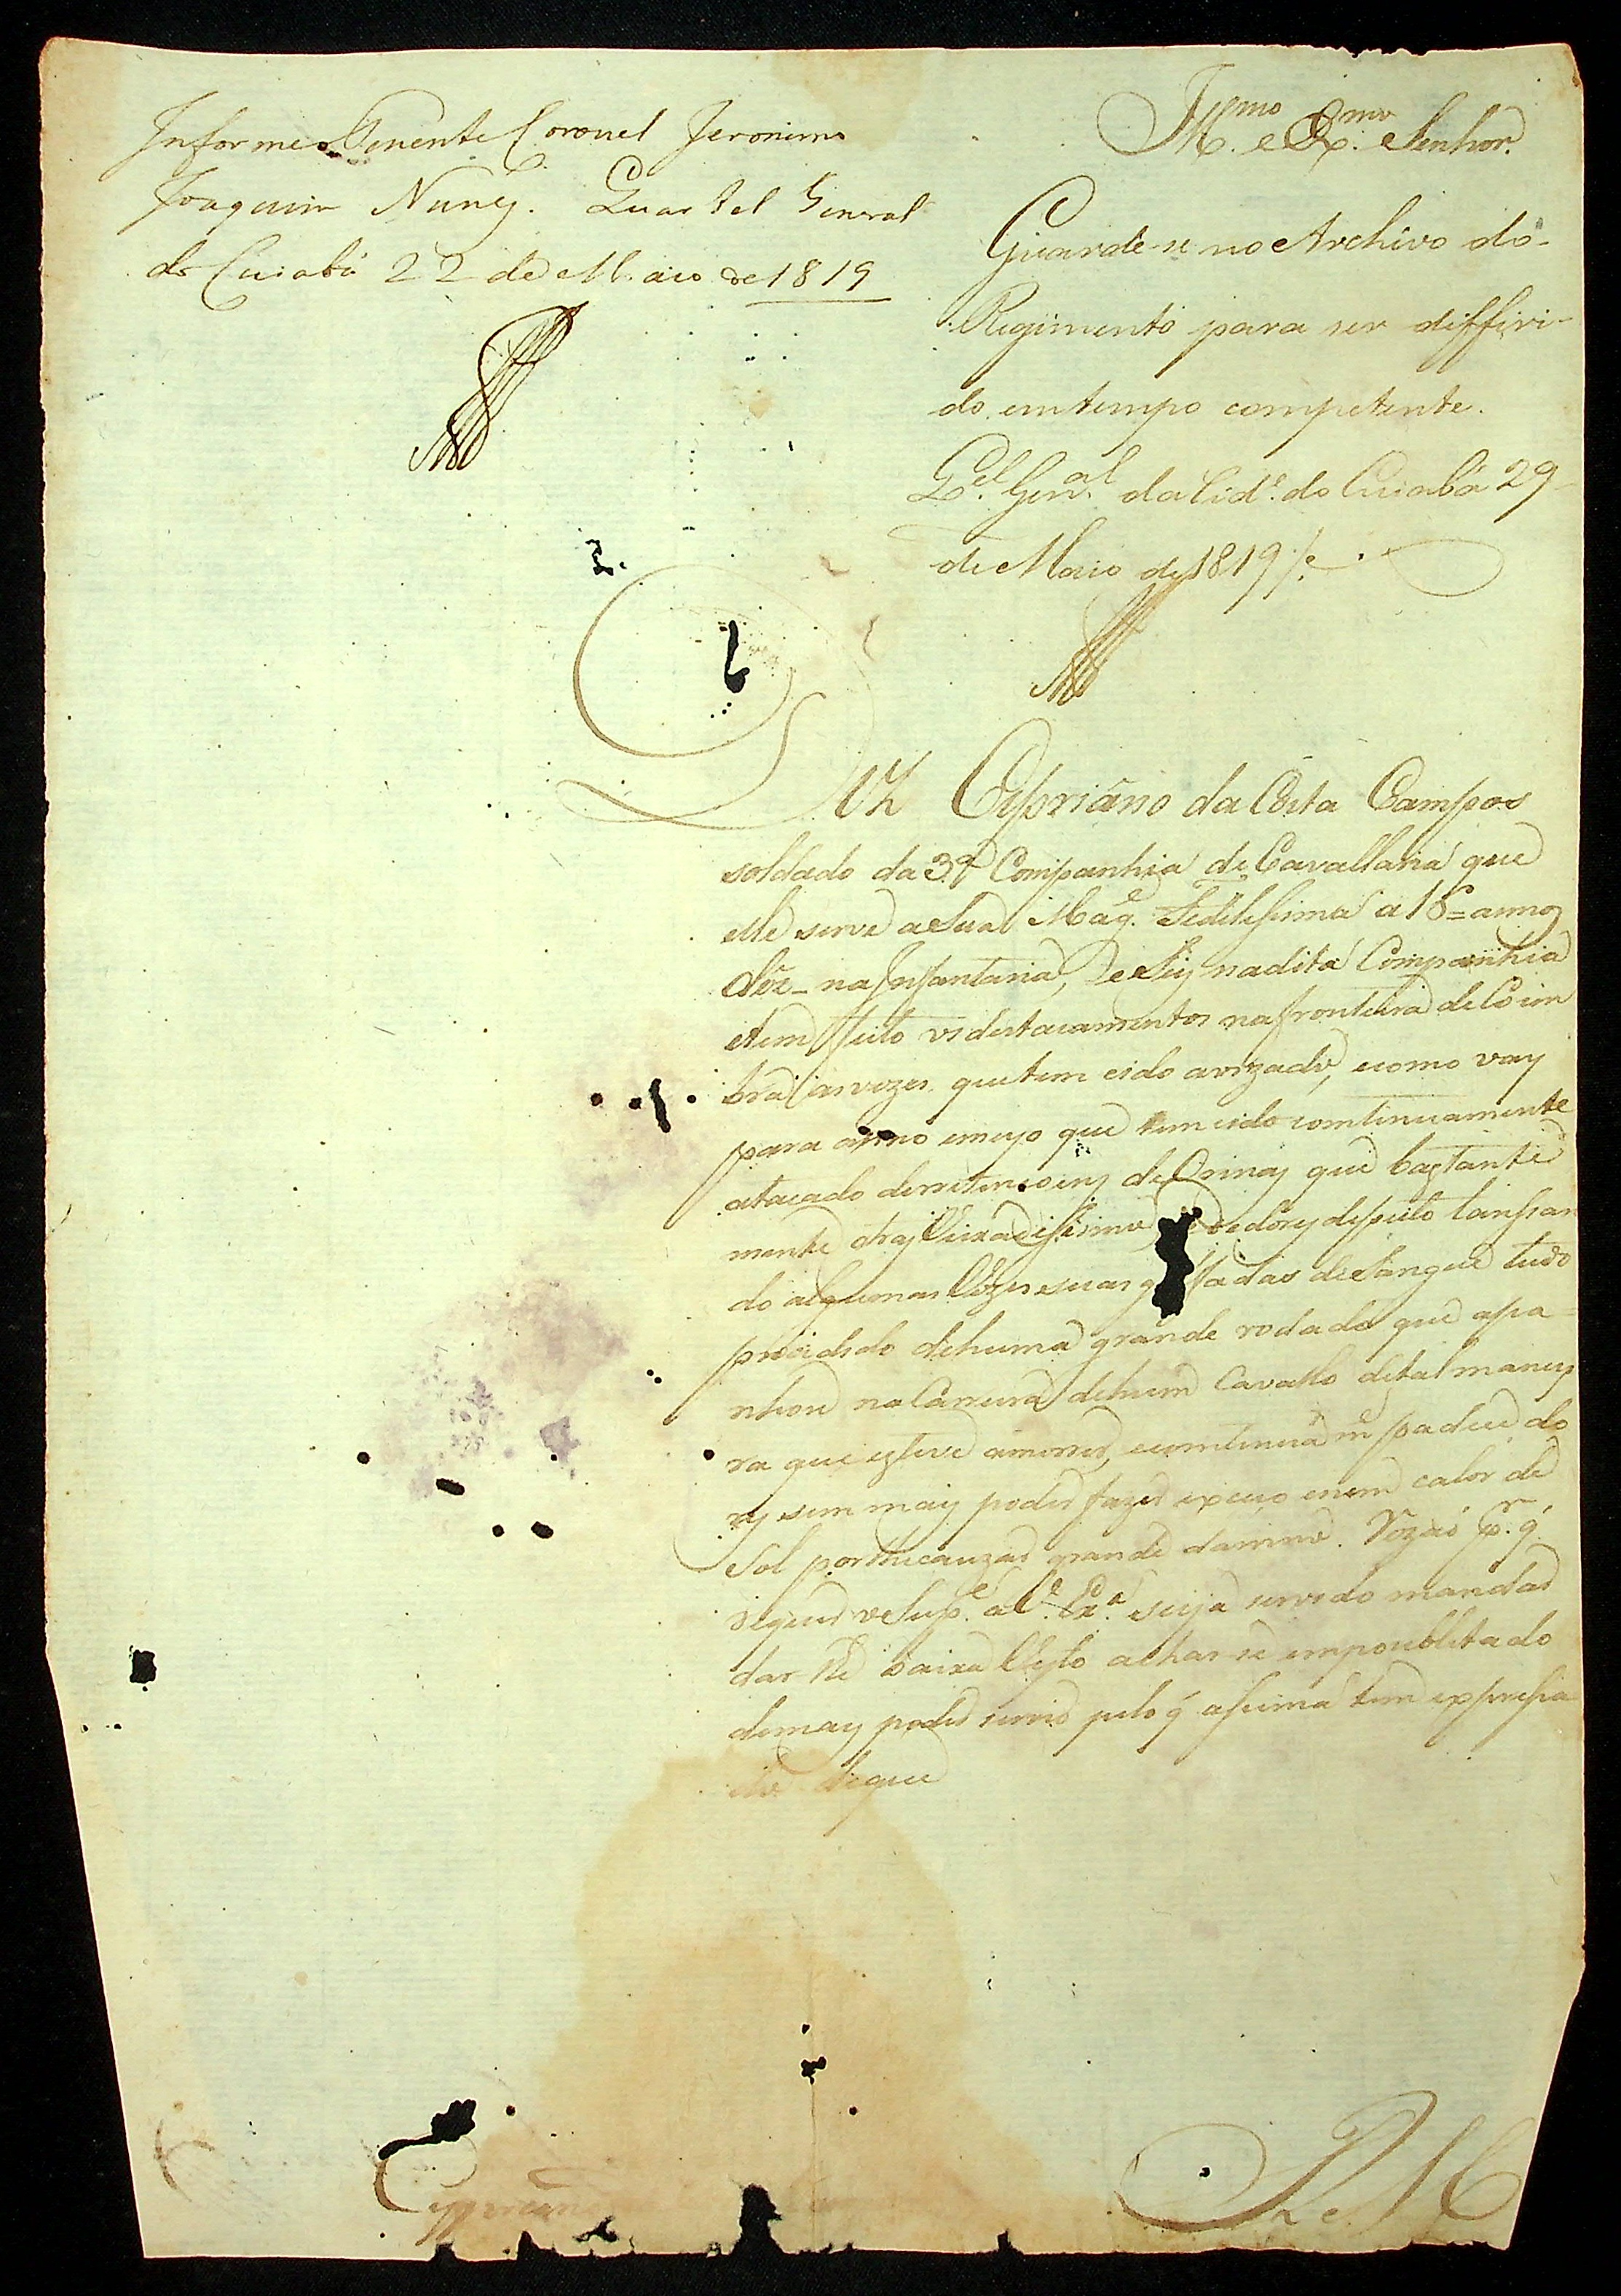 Informe o Tenente Coronel Jeronimo
Joaquim Nunes. Quartel General
do Cuiabá 22 de Maio de 1819
Ill.mo e Ex.mo Senhor.
Guarde-se no Archivo do
Regimento para ser differi-
do em tempo competente.
Q.el Gen.al da Cid.e do Cuiabá 29
de Maio de 1819
Diz Cipriano da Costa Campos
soldado da 3.ª Companhia de Cavallaria que
elle serve a Sua Mag.e Fedelissima a 16 = annos
dêz - na Infantaria, e Seis na dita Companhia
e tem feito os destacamentos na fronteira de Coim
bra as vezes que tem cido avizado, e como vay
para anno e meyo que tem cido continuamente
atacado de retencoens de Orinas que bastante
mente o tras vexadissimo e dores de peito lanssan
do algumas Vezes suas g fadas de Sangue tudo
procedido de huma grande rodada que apa =
nhou na Carreira de hum Cavallo de tal maney
ra que esteve a morrer, e continua em padecedo
res sem mais poder fazer exceço e nem calor de
Sol por lhe cauzar grande danno. Rozaó p.r q'
requer o Sup.e a V.ª Ex.ª seja servido mandar
dar-lhe baixa Visto achar-se impociblitado
de mais poder servir pelo q' assima tem expressa
do de que
Cipriano
R M